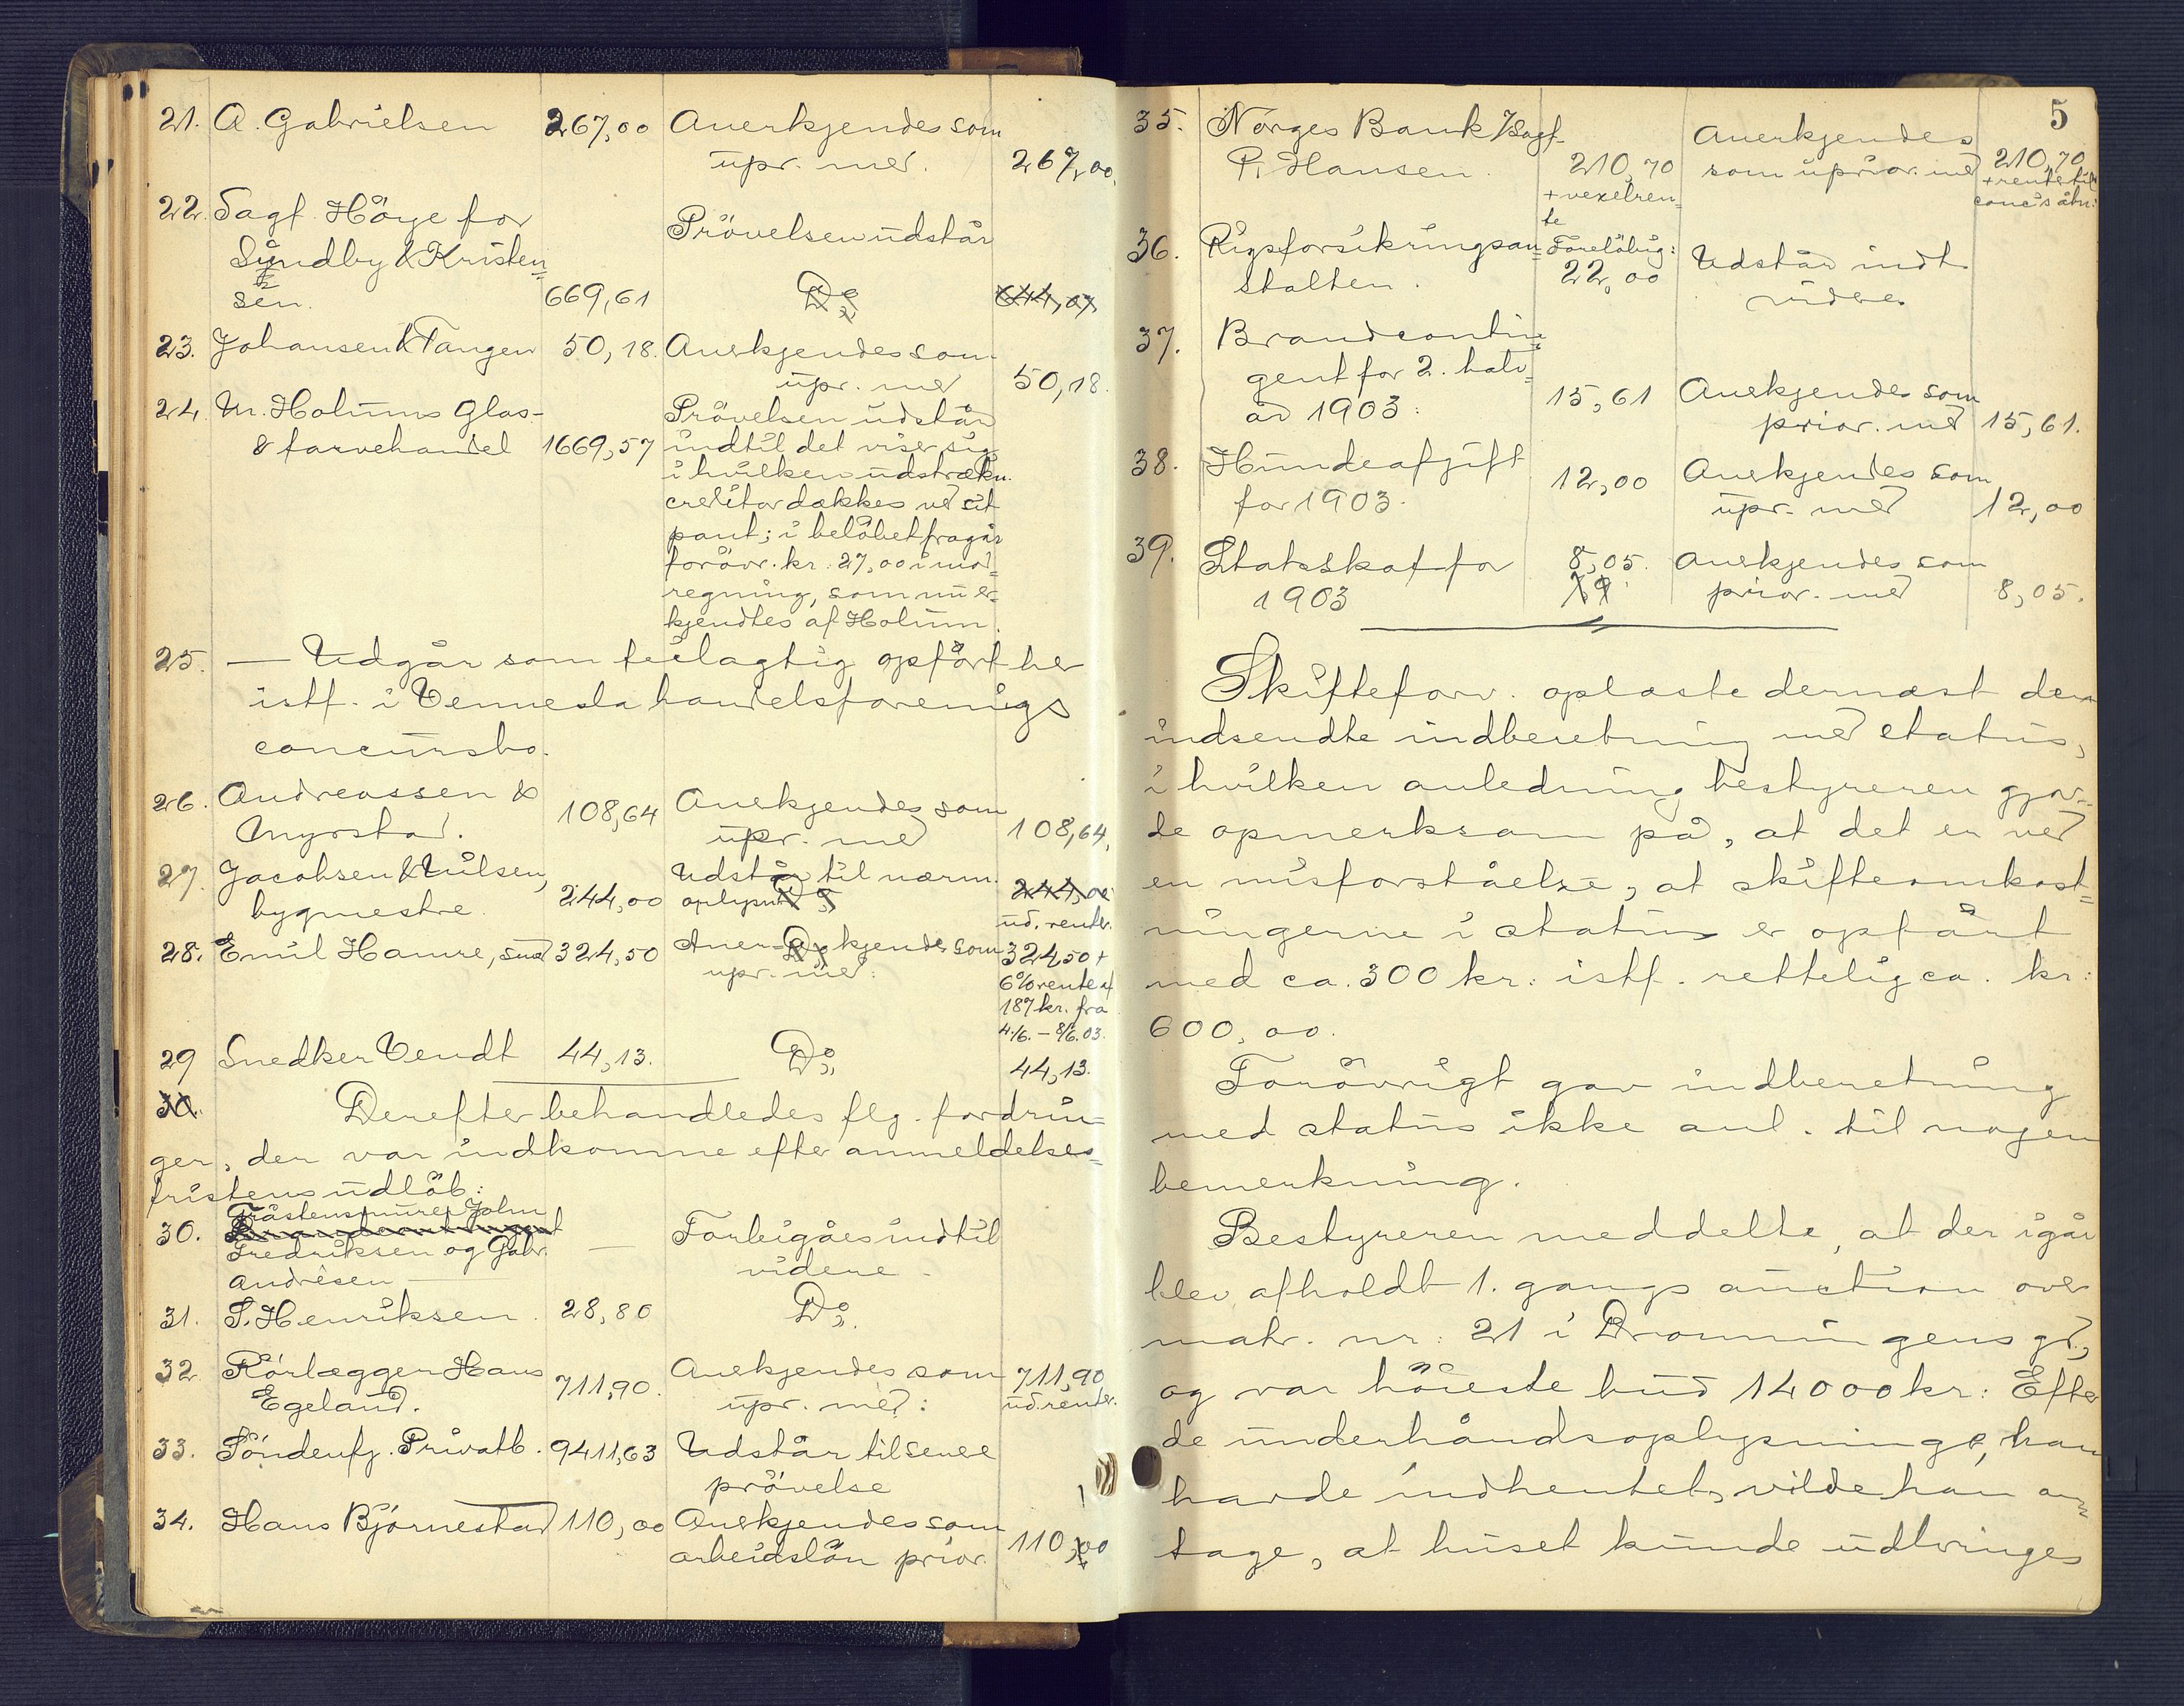 21. A. Gabrielsen 267,00 Anerkjendes som
upr. med 267,00.
22. Sagf. Höye for
Sundby & Kristen=
sen. 669,61 Prövelsen udstår
Do 644,07
23. Johansen & Tangen 50,18. Anerkjendes som
upr. med 50,18.
24. M. Holums Glas-
& farvehandel 1669,57 Prövelsen udstår
indtil det viser sig
i hvilken udstrækn.
creditor dækkes ved sit
pant; i belöbet fragår
forövr. kr: 27,00 i mod=
regning, som nu er=
kjendtes af Holum.
25. — Udgår som feilagtig opfört her
istf. i Vennesla handelsforenings
concursbo.
26. Andreassen &
Myrstad. 108,64 Anerkjendes som
upr. med 108,64.
27. Jacobsen & Nilsen,
bygmestre. 244,00 Udstår til nærm.
oplysn. Do 244,00
ud. renter.
28. Emil Hamre, smed 324,50 Aner- Do kjendes som
upr. med: 324,50 +
6% rente af
187 kr. fra
4/6. – 8/6.03.
29 Snedker Vendt 44,13. Do 44,13.
30. Derefter behandledes flg. fordrin=
ger, der var indkomne efter anmeldelses=
fristens udlöb:
30. Gråstensmurer John
Brandcontingent
Fredriksen og Gabr.
Andresen — Forbigåes indtil
videre
31. S. Henriksen. 28,80 Do
32. Rörlægger Hans
Egeland. 711,90. Anerkjendes som
upr. med: 711,90
ud. renter.
33. Söndenfj. Privatb. 9411,63 Udstår til senere
prövelse
34. Hans Björnestad 110,00 Anerkjendes som
arbeidslön prior. 110,00
5
35. Norges Bank /Sagf.
P. Hansen. 210,70
+ vexelren=
te Anerkjendes
som uprior. med 210,70
+ rente til
conc's åbn:
36. Rigsforsikringsan=
stalten. Foreløbig:
22,00 Udstår indt.
videre.
37. Brandcontin=
gent for 2. halv=
år 1903: 15,61 Anerkjendes som
prior. med 15,61.
38. Hundeafgift
for 1903. 12,00 Anerkjendes som
upr. med 12,00
39. Statsskat for
1903 8,05. Anerkjendes som
prior. med 8,05.
Skifteforv. oplæste dernæst den
indsendte indberetning med status,
i hvilken anledning bestyreren gjor=
de opmerksom på, at det er ved
en misforståelse, at skifteomkost=
ningerne i status er opfört
med ca. 300 kr: istf. rettelig ca. kr:
600,00.
Forövrigt gav indberetning
med status ikke anl. til nogen
bemerkning.
Bestyreren meddelte, at der igår
blev afholdt 1. gangs auction over
matr. nr: 21 i Dronningens gd,
og var höieste bud 14000 kr: Efter
de underhåndsoplysninger, han
havde indhentet, vilde han an=
tage, at huset kunde udbringes